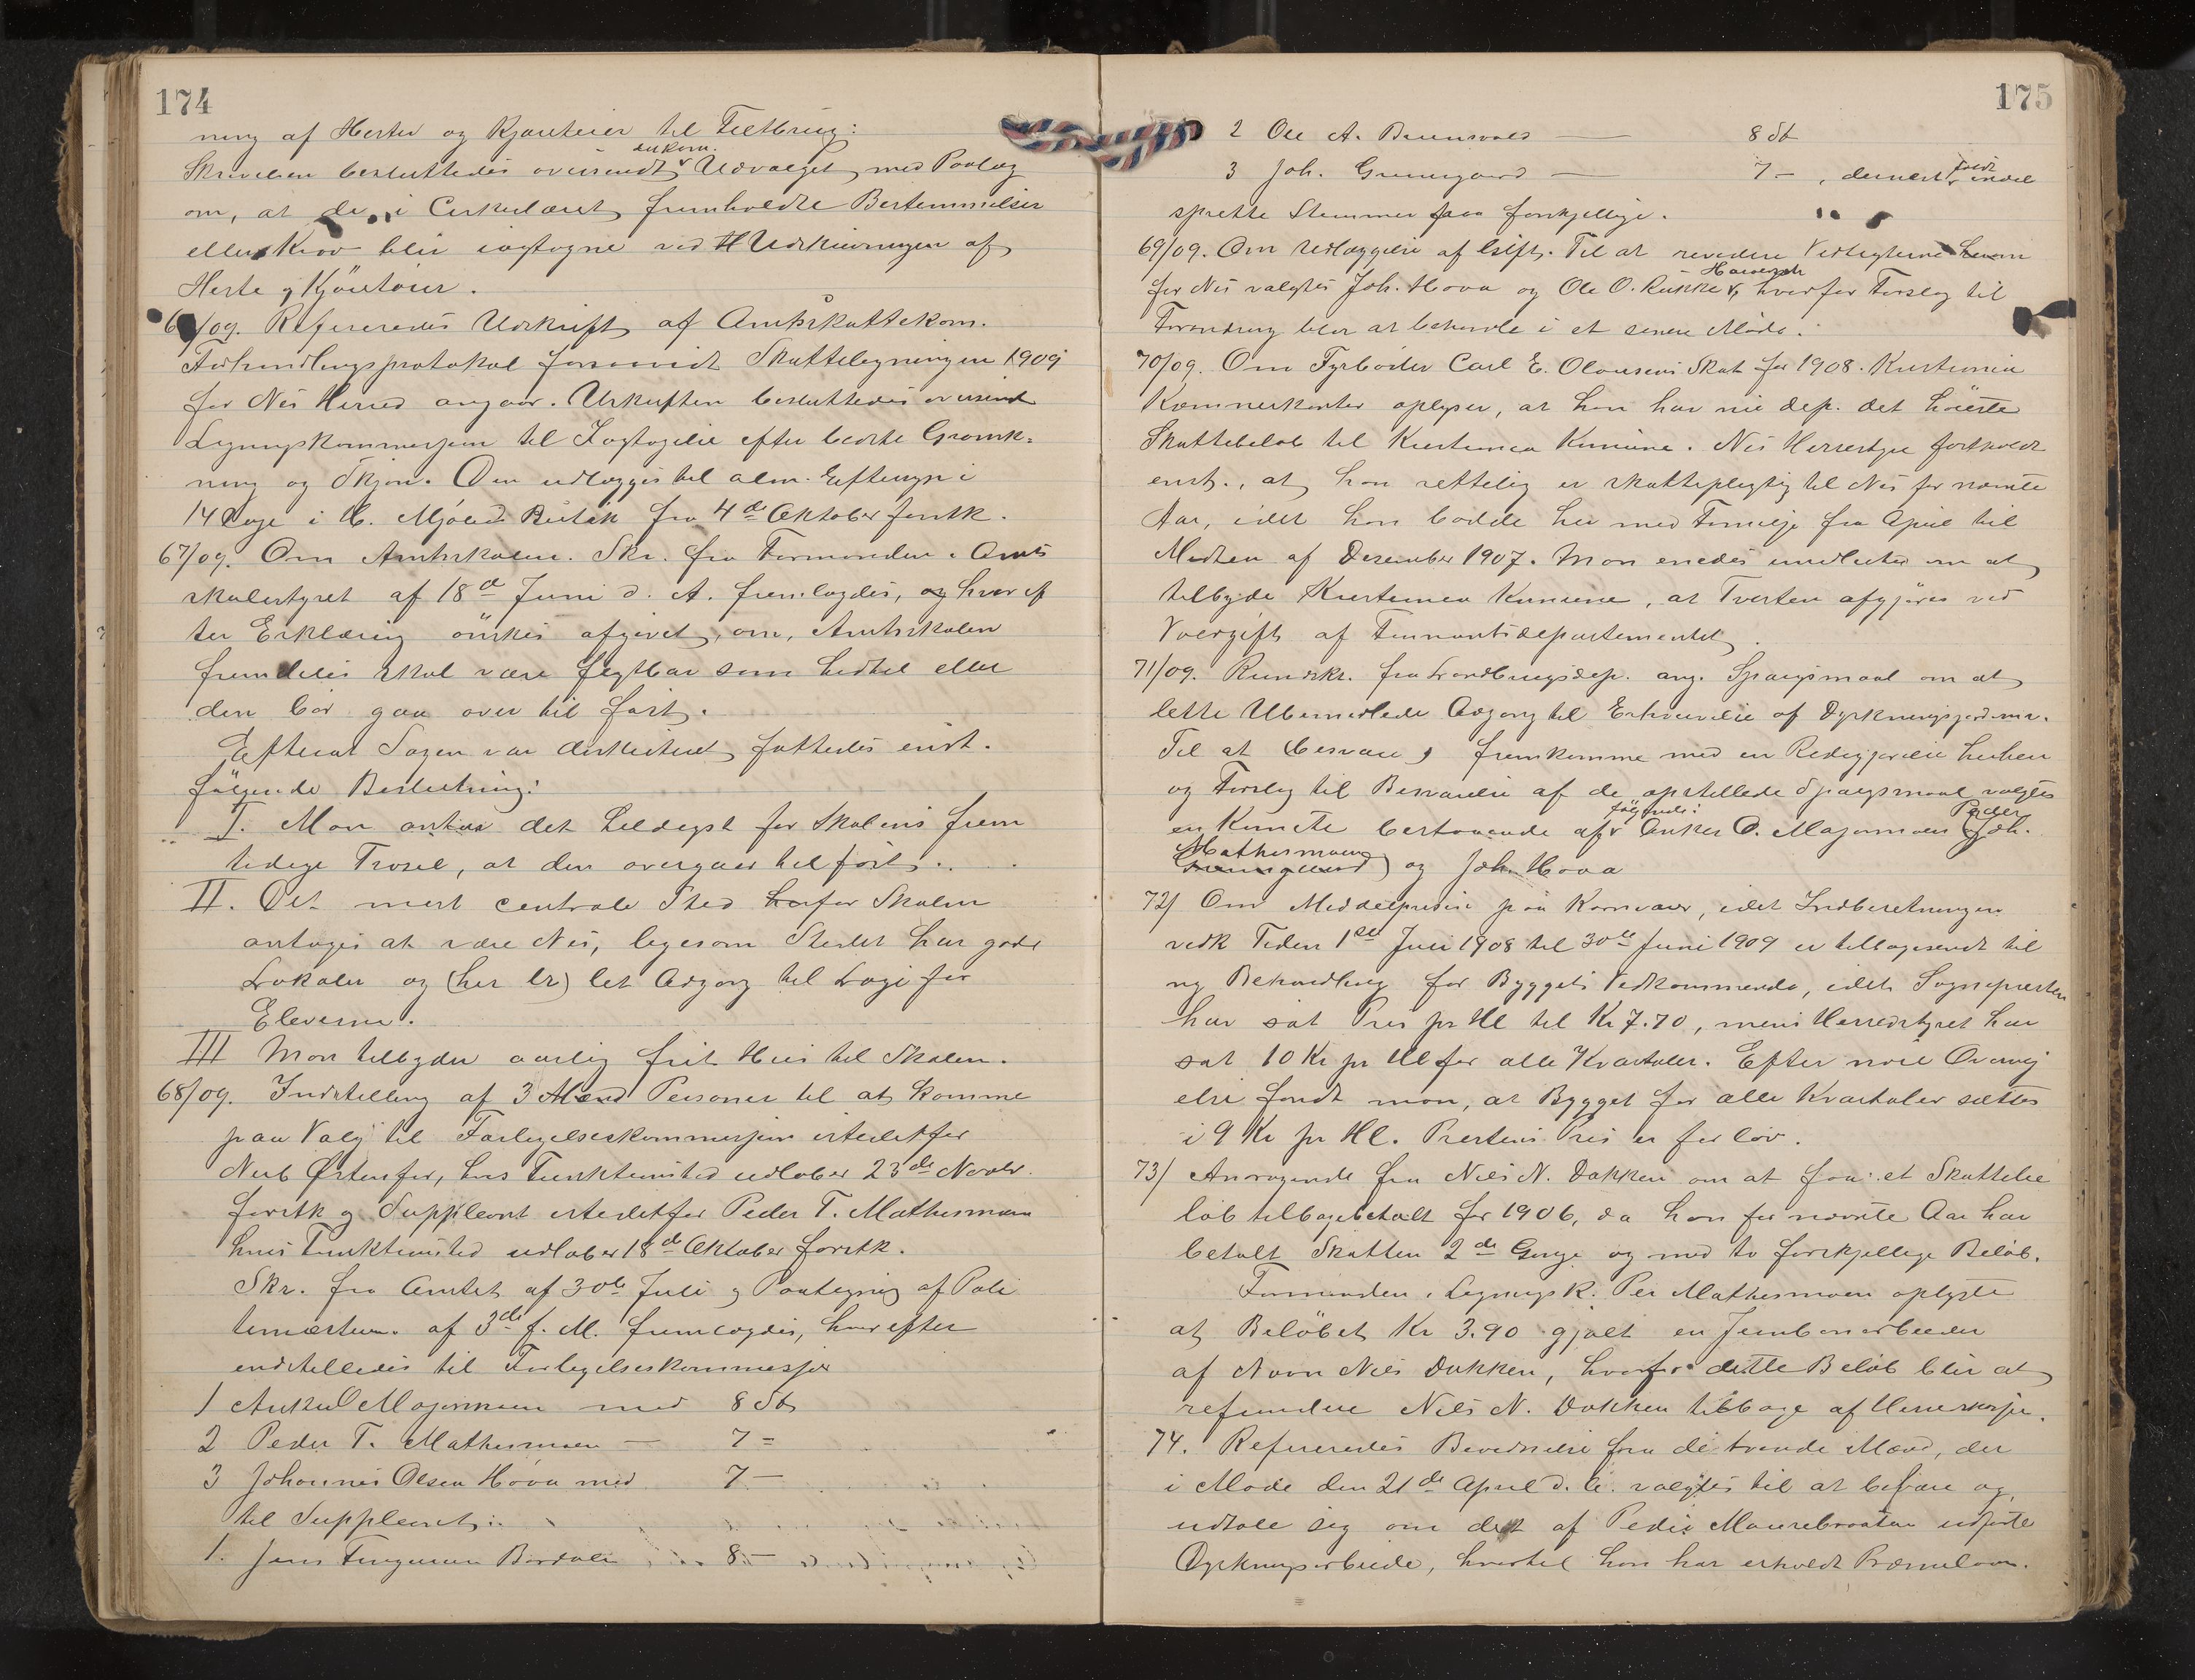 174
ning af Hester og Kjøretøier til Feltbrug:
Skrivelsen besluttedes oversendt Udskrivn. Udvalget med Paalæg
om, at de i Cirkulæret fremholdte Bestemmelser
eller Krav blir iagtagne ved Udskrivningen af
Heste og Kjöretöier.
66/09. Refereredes Udskrift af Amtsskattekom.
Forhandlingsprotokol forsaavidt Skatteligningen 1909
for Nes Herred angaar. Udskriften besluttedes oversendt
Ligningskommissjonen til Iagttagelse efter bedste Gransk-
ning og Skjøn. Den udlægges til alm. Eftersyn i
14 Dage i C. Mjølids Butik fra 4de Oktober førstk.
67/09. Om Amtsskolen. Skr. fra Formanden i Amts
skolestyret af 18de Juni d. A. fremlagdes, og hvoref
ter Erklæring önskes afgivet, om, Amtsskolen
fremdeles skal være flytbar som hidtil eller
den bör gaa over til fast.
Efterat Sagen var diskuteret fattedes enst.
fölgende Beslutning:
I. Man antar det heldigst for Skolens frem
tidige Trivsel, at den overgaar til fast.
II. Det mest centrale Sted for Skolen
antages at være Nes, ligesom Stedet har gode
Lokaler og (her er) let Adgang til Logi for
Eleverne.
III Man tilbyder aarlig frit Hus til Skolen.
68/09. Indstilling af 3 Mænd Personer til at komme
paa Valg til Forligelseskommissjon istedetfor
Nub Østenfor, hvis Funktionstid udløber 23de Novbr.
førstk og Suppleant istedetfor Peder T. Mathismoen
hvis Funktionstid udløber 18de Oktober førstk.
Skr. fra Amtet af 30te Juli og Paategning af Poli
timesteren af 3de f. M. fremlagdes, hvorefter
indstilledes til Forligelseskommissjon
1 Anker O Majormoen med 8 St
2 Peder T. Mathismoen — 7 =
3 Johannes Olsen Hova med 7 —
til Suppleant:
1. Jens Bordalen 8 —
175
2 Ole A. — 8 St
3 Joh. Grønengaard — 7 — , dernæst faldt endel
sprette Stemmer paa forskjellige.
69/09. Om Udlæggelse af Gift. Til at revidere Vedtægterne herom
for Nes valgtes Joh. Hova og Ole O. Rukke Haverstr, hvorfor Forslag til
Forandring blir at behandle i et senere Møde.
70/09. Om Fyrböder Carl E. Olausens Skat for 1908. Kristiania
Kæmnerkontor oplyser, at han har nu dep. det höieste
Skattebeløb til Kristiania Kommune. Nes Herredstyre fastholdt
enst., at han rettelig er skattepligtig til Nes for nævnte
Aar, idet han bodde her med Familje fra April til
Midten af Desember 1907. Man enedes imidlertid om at
tilbyde Kristiania Kommune, at Tvisten afgjøres ved
Voldgift af Finantsdepartementet.
71/09. Rundskr. fra Landbrugsdep. ang. Spørgsmaal om at
lette Ubemidlede Adgang til Erhvervelse af Dyrkningsjord m.v.
Til at besvare og fremkomme med en Redegjørelse herhen
og Forslag til Besvarelse af de opstillede Spørgsmaal valgtes
en Komite bestaaende af følgende: Anker O. Majormoen Peder
Mathismoen Joh. Grønengaard og Joh. Hova
72/ Om Middelprisen paa Kornvarer, idet Indberetningen
vedk Tiden 1ste Juli 1908 til 30te Juni 1909 er tilbagesendt til
ny Behandling for Bygget's Vedkommende, idet Sognepresten
har sat Pris pr Hl til Kr 7.70, mens Herredstyret har
sat 10 Kr pr Hl for alle Kvartaler. Efter nøie Overvej
else fandt man, at Bygget for alle Kvartaler sættes
i 9 Kr pr Hl. Prestens Pris er for lav.
73/ Andragende fra Niels N. Dokken om at faa et Skattebe
løb tilbagebetalt for 1906, da han for nævnte Aar har
betalt Skatten 2de Gange og med to forskjellige Beløb.
Formanden i Lignings K. Per Mathismoen oplyste
at Beløbet Kr 3.90 gjalt en Jernbanearbeider
af Navn Nils Dokken, hvorfor dette Beløb blir at
refundere Nils N. Dokken tilbage af Herredskassen.
74. Refereredes Bevidnelse fra de tvende Mænd, der
i Møde den 21de April d. A. valgtes til at befare og
udtale sig om det af Peder Maurebraaten udførte
Dyrkningsarbeide, hvortil han har erholdt Præmielaan.